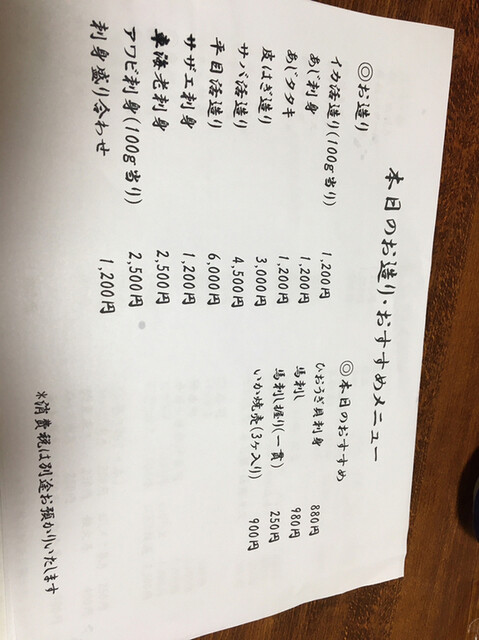 本日のお造り・おすすめメニュー
◎お造り
イカ活造り(100g当り) 1,200円
あじ刺身 1,200円
あじタタキ 1,200円
皮はぎ造り 3,000円
サバ活造り 4,500円
平目活造り 6,000円
サザエ刺身 1,200円
車海老刺身 2,500円
アワビ刺身(100g当り) 2,500円
刺身盛り合わせ 1,200円
◎本日のおすすめ
ひおうぎ貝刺身 880円
馬刺し 980円
馬刺し握り(一貫) 250円
いか焼売(3ヶ入り) 900円
※消費税は別途お預かりいたします